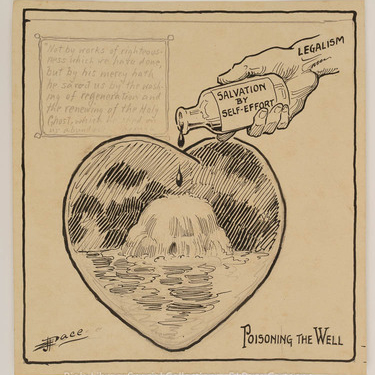 "Not by works of righteous-
ness which we have done,
but by his mercy hath
he saved us by the wash-
ing of regeneration and
the renewing of the Holy
Ghost, which he
LEGALISM
SALVATION
BY
SELF-EFFORT
Pace
POISONING THE WELL